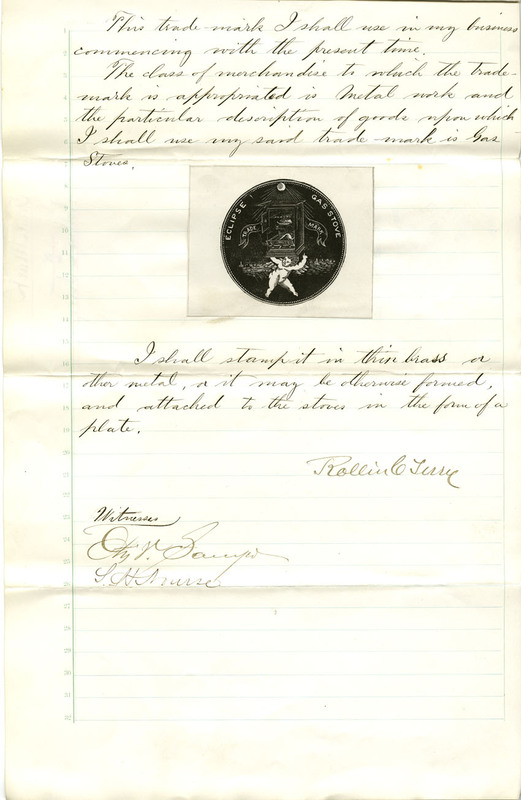 This trade-mark I shall use in my business
commencing with the present time.
The class of merchandise to which the trade-
mark is appropriated is Metal work and
the particular description of goods upon which
I shall use my said trade-mark is Gas
Stoves.
ECLIPSE GAS STOVE
TRADE MARK
I shall stamp it in thin brass or
other metal, or it may be otherwise formed,
and attached to the stoves in the form of a
plate.
Rollin C Terry
Witnesses
S. H. Nurse
1
2
3
4
5
6
7
8
9
10
11
12
13
14
15
16
17
18
19
20
21
22
23
24
25
26
27
28
29
30
31
32